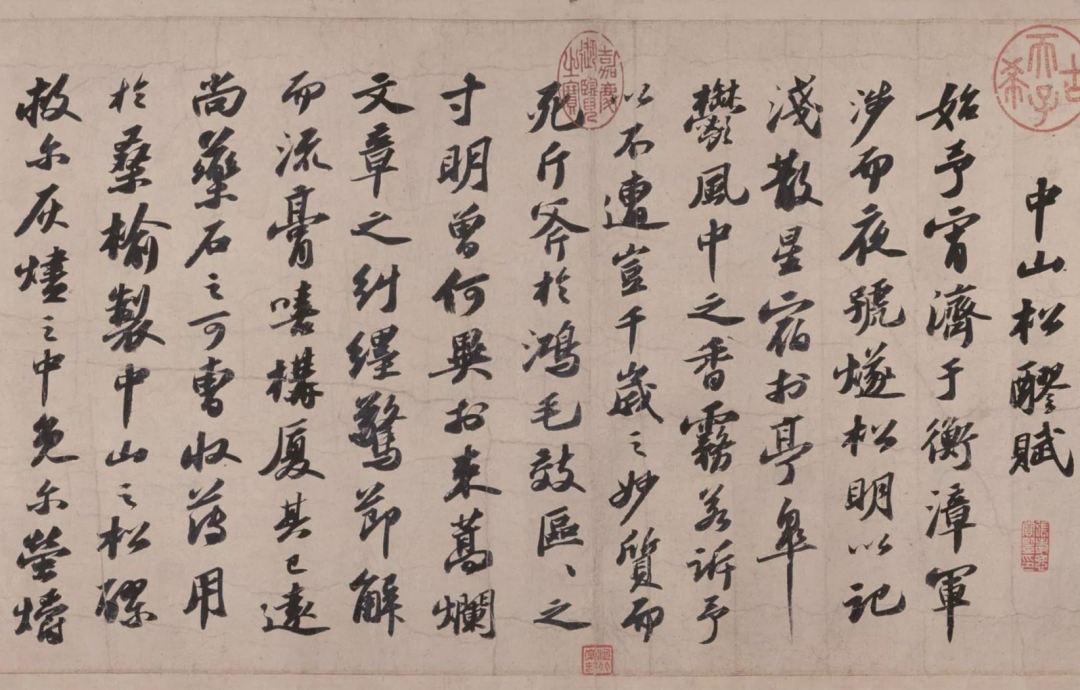 古希天子
中山松醪賦
始予宵濟于衡漳軍
涉而夜號燧松明以記
淺散星宿於亭皋
鬱風中之香霧若訴予
以不遭豈千歲之妙質而
死斤斧於鴻毛效區〻之
寸明曾何異於束蒿爛
文章之糾纆驚節解
而流膏嘻構厦其已遠
尚藥石之可曹收薄用
於桑榆製中山之松醪
救尔灰燼之中免尔螢爝
嘉慶御覽之寶